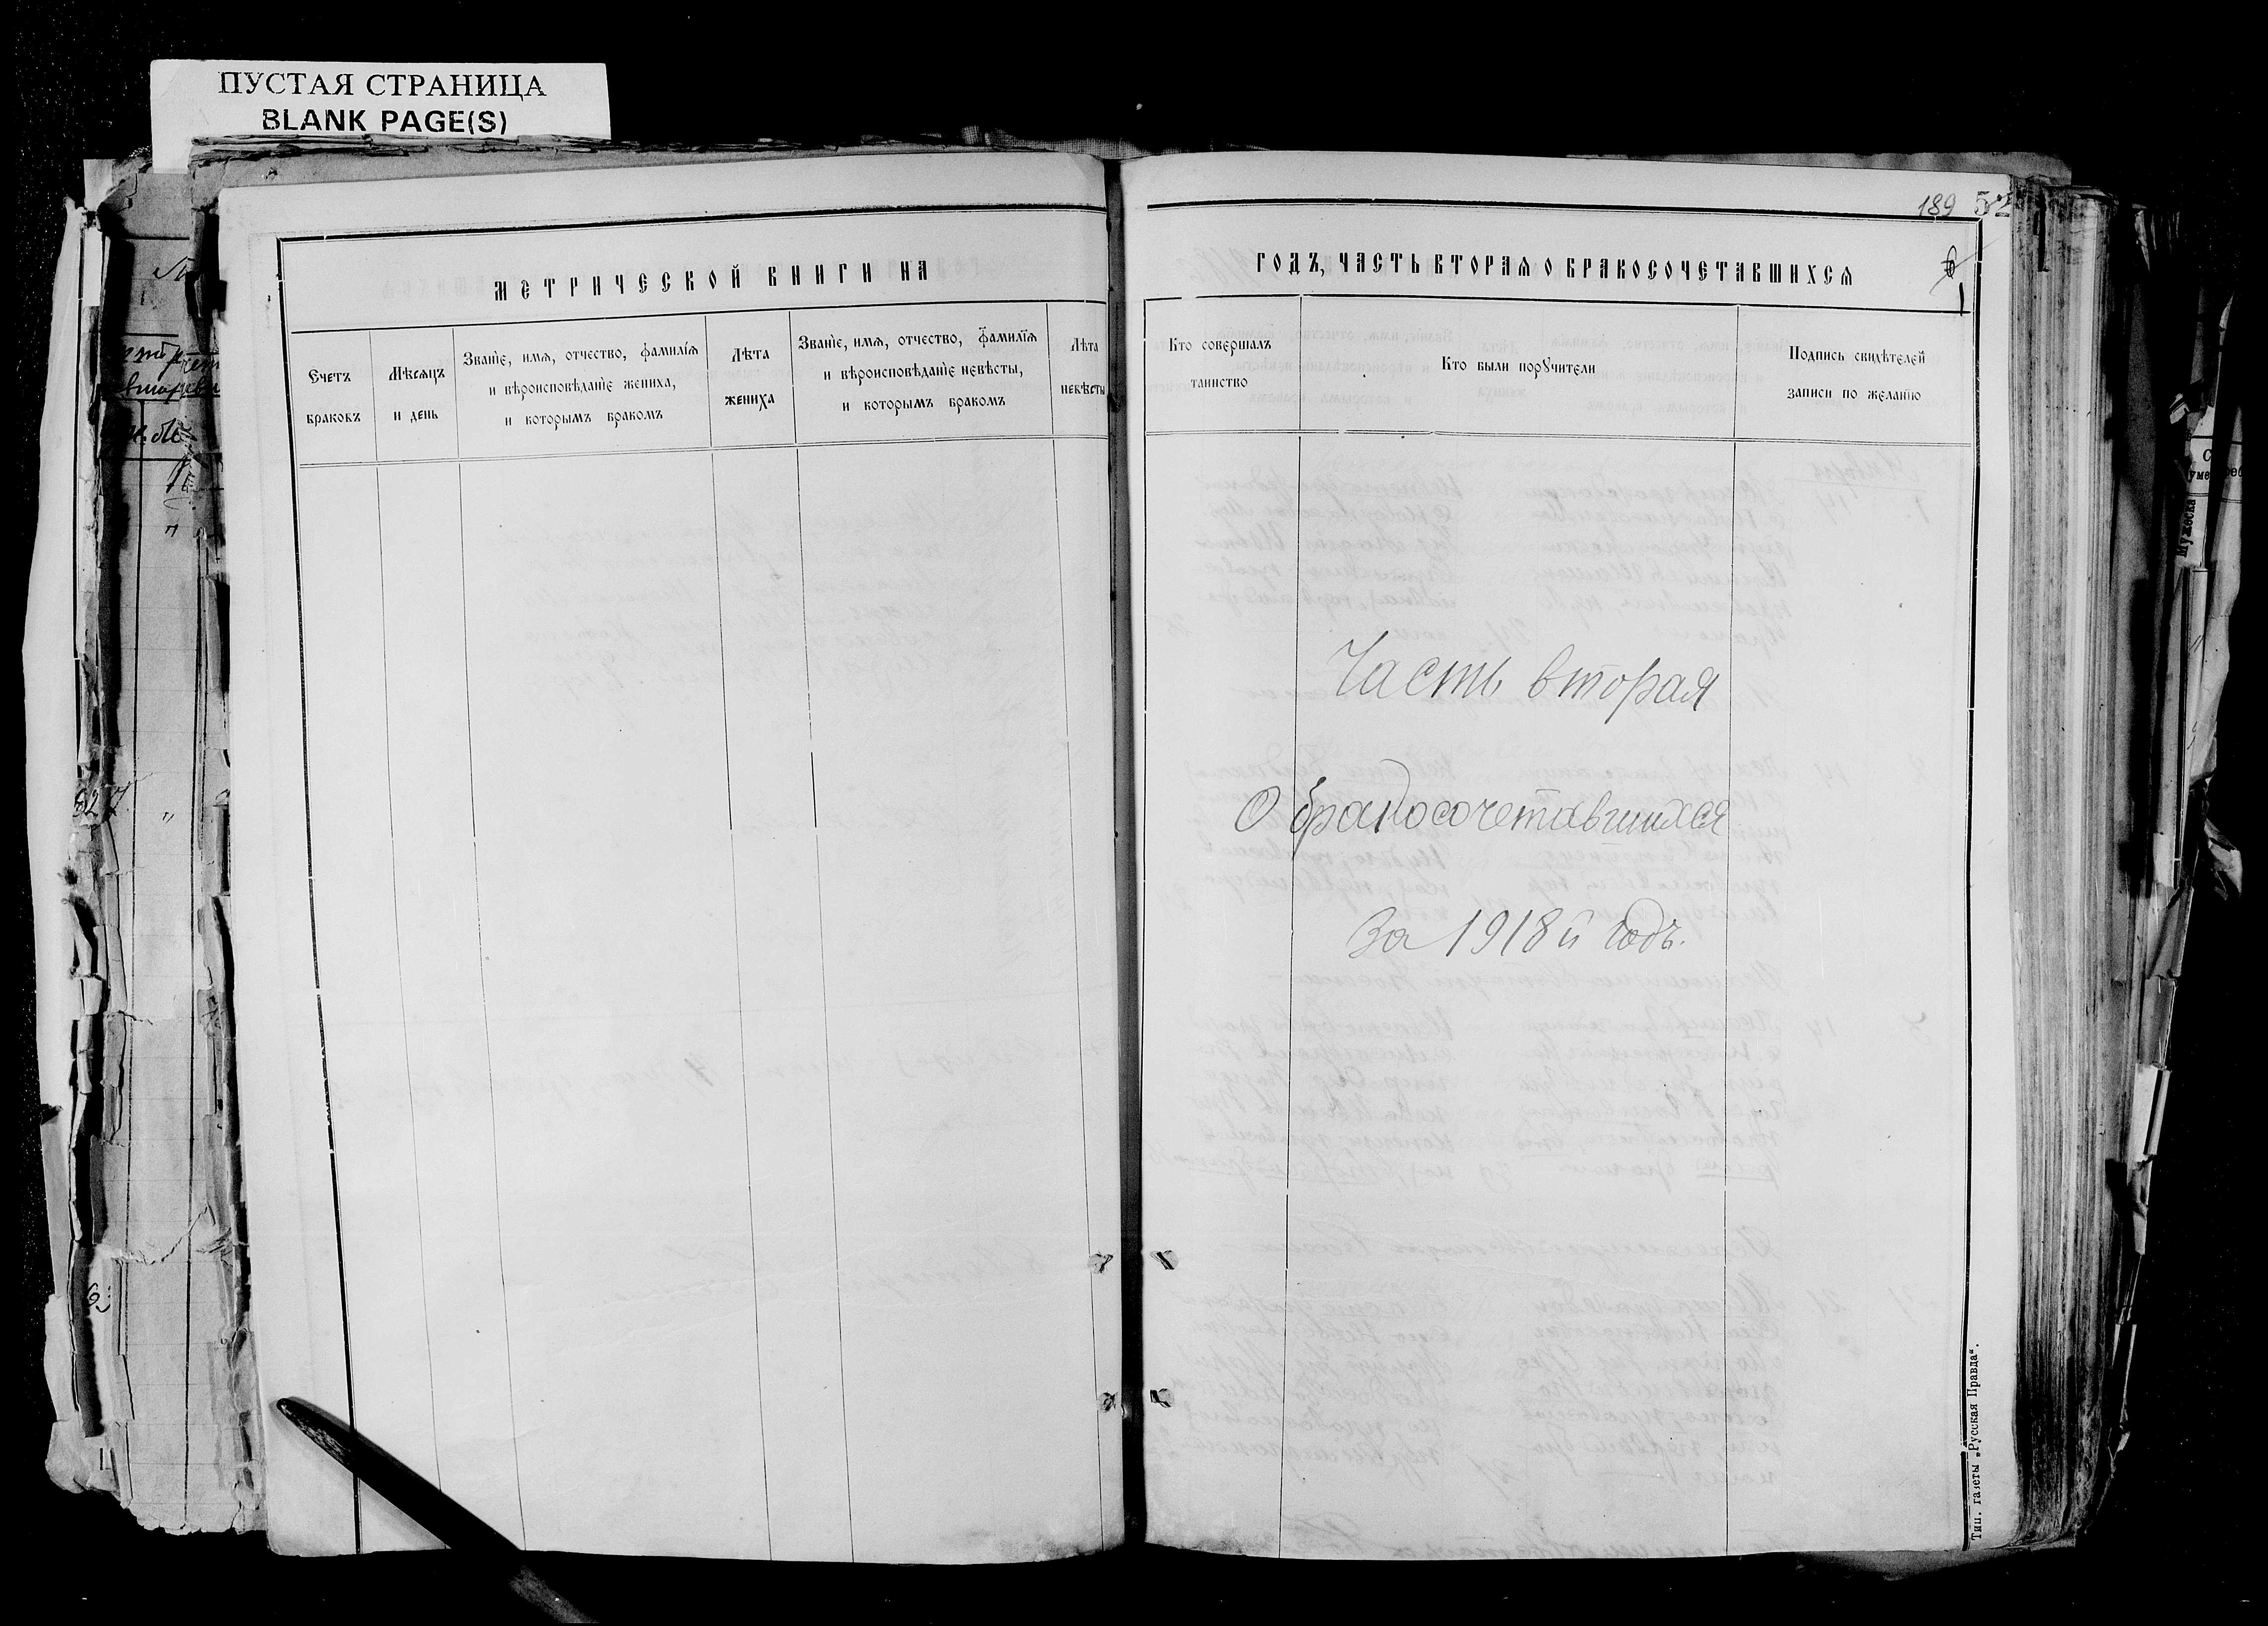 ПУСТАЯ СТРАНИЦА
BLANK PAGE(S)
МЕТРИЧЕСКОЙ КНИГИ НА
Счетъ
браковъ
Мѣсяцъ
и день
Званїе, имѧ, отчество, фамилїѧ
и вѣроисповѣданїе жениха,
и которымъ бракомъ
Лѣта
жениха
Званїе, имѧ, отчество, фамилїѧ
и вѣроисповѣданїе невѣсты,
и которымъ бракомъ
Лѣта
невѣсты
189 52
ГОДЪ, ЧАСТЬ ВТОРАѦ О БРАКОСОЧЕТАВШИХСѦ
1
Кто совершалъ
таинство
Кто были порꙋчители
Подпись свидѣтелей
записи по желанїю
Часть вторая
О бракосочетавшихся
За 1918й годъ.
Тип. газеты „Русская Правда“.